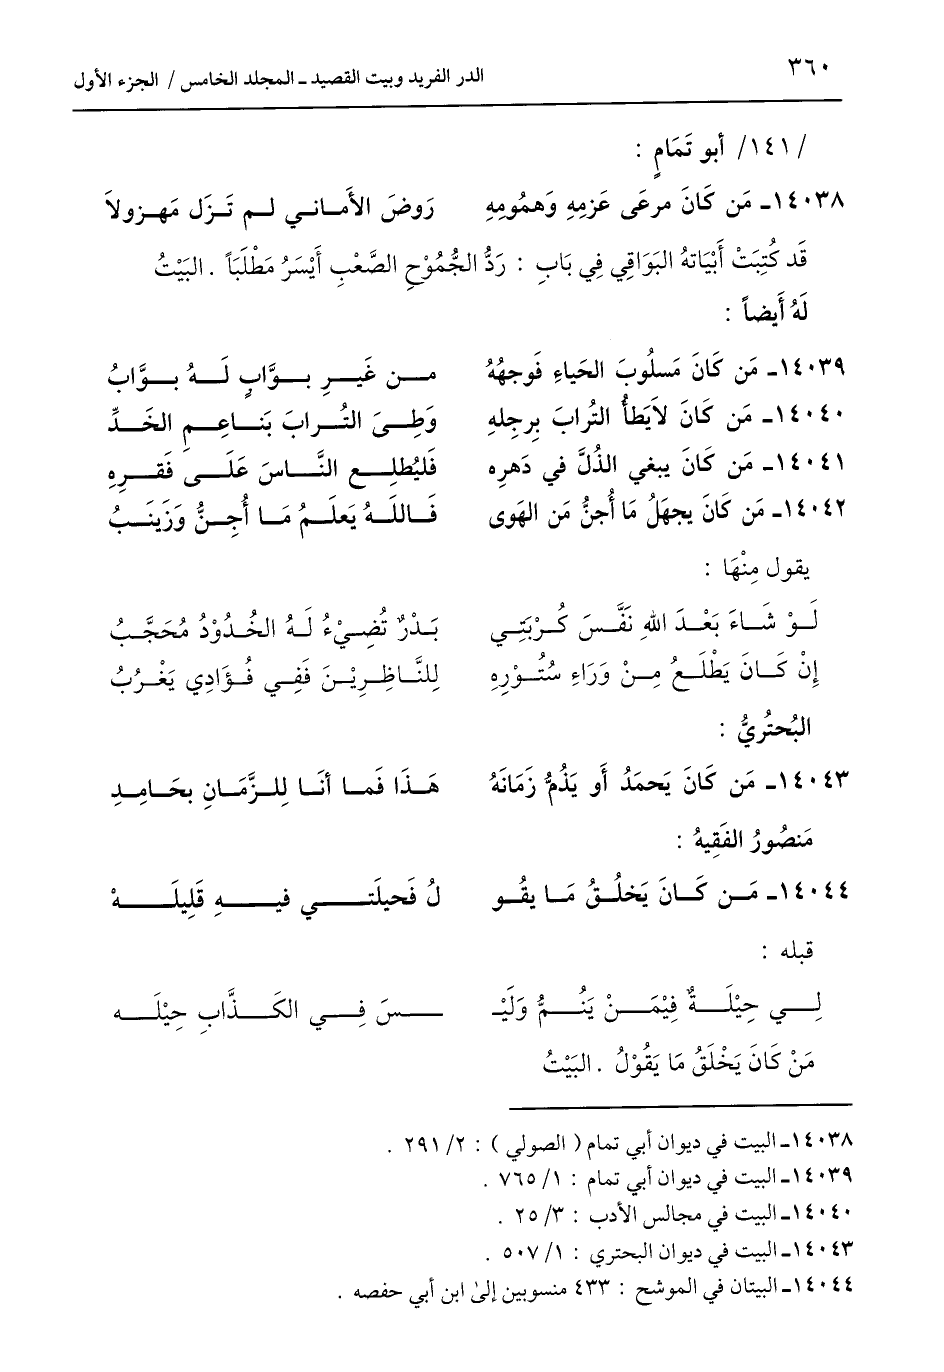 ٣٦٠
الدر الفريد وبيت القصيد ـ المجلد الخامس / الجزء الأول
/١٤١/ أبو تَمَامٍ :
١٤٠٣٨ـ مَن كَانَ مرعَى عَزمِهِ وَهمُومِهِ روضَ الأَمانـي لـم تَـزَل مَهـزولاَ
قَد كُتِبَتْ أَبْيَاتهُ البَوَاقِي فِي بَابِ : رَدُّ الجُمُوْحِ الصَّعْبِ أَيْسَرُ مَطْلَبَاً . البَيْتُ
لَهُ أَيضاً :
١٤٠٣٩ـ مَن كَانَ مَسلُوبَ الحَياءِ فَوجهُهُ مـن غَيـرِ بـوَّابٍ لَـهُ بـوَّابُ
١٤٠٤٠ـ مَن كَانَ لاَيَطأُ التُرابَ بِرجلِهِ وَطِىَ التُـرابَ بَنـاعِـمِ الخَـدِّ
١٤٠٤١ـ مَن كَانَ يبغي الذُلَّ في دَهرِه فَليُطلِـع النَّـاسَ عَلَـى فَقـرِهِ
١٤٠٤٢ـ مَن كَانَ يجهَلُ مَا أُجنُّ مَن الهَوى فَـاللَـهُ يَعلَـمُ مَـا أُجِـنُّ وَزَينَـبُ
يقول مِنْهَا :
لَـوْ شَـاءَ بَعْـدَ اللهِ نَفَّـسَ كُـرْبَتِـي بَـدْرٌ تُضِـيْءُ لَـهُ الخُـدُوْدُ مُحَجَّـبُ
إِنْ كَـانَ يَطْلَـعُ مِـنْ وَرَاءِ سُتُـوْرِهِ لِلنَّـاظِرِيْـنَ فَفِـي فُـؤَادِي يَغْـرُبُ
البُحتُريُّ :
١٤٠٤٣ـ مَن كَانَ يَحمَدُ أو يَذمُّ زَمَانَهُ هَـذَا فَمـا أنَـا لِلـزَّمَـانِ بحَـامِـدِ
مَنصُورُ الفَقِيهُ :
١٤٠٤٤ـ مَـن كَـانَ يَخلُـقُ مَـا يقُـو لُ فَحيلَتـي فيـهِ قَلِيلَـهْ
قبله :
لِـي حِيْلَـةٌ فِيْمَـنْ يَنُـمُّ وَلَيْـ ـسَ فِـي الكَـذَّابِ حِيْلَـه
مَنْ كَانَ يَخْلَقُ مَا يَقُوْلُ . البَيْتُ
١٤٠٣٨ـ البيت في ديوان أبي تمام ( الصولي ) : ٢/ ٢٩١ .
١٤٠٣٩ـ البيت في ديوان أبي تمام : ١/ ٧٦٥ .
١٤٠٤٠ـ البيت في مجالس الأدب : ٣/ ٢٥ .
١٤٠٤٣ـ البيت في ديوان البحتري : ١/ ٥٠٧ .
١٤٠٤٤ـ البيتان في الموشح : ٤٣٣ منسوبين إلىٰ ابن أبي حفصه .